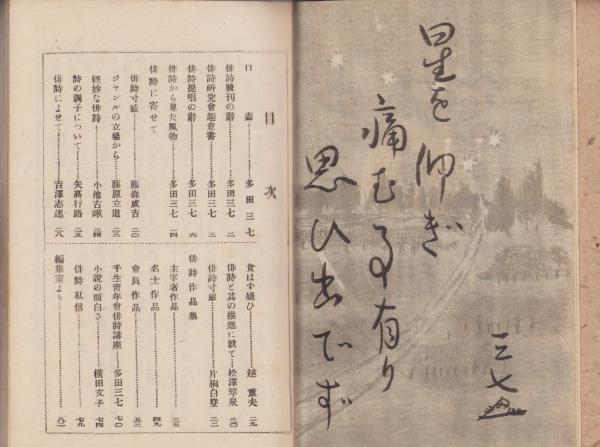 星を仰ぎ
痛む事有り
思ひ出でず
三七
目次
口畫………多田三七
俳詩發刊の辭………多田三七 二
俳詩研究會趣意書………多田三七 三
俳詩提唱の辭………多田三七 六
俳詩から見た風物………多田三七 一四
俳詩に寄せて
俳詩寸感………藤森成吉 二〇
ジャンルの立場から………藤原立道 二三
輕妙な俳詩………小池古瞰 二四
詩の調子について………矢高行路 二五
俳詩によせて………吉澤志逑 二八
食はず嫌ひ………越重夫 二九
俳詩と其の推進に就て………松澤琴泉 三〇
俳詩寸感………片桐白登 三三
俳詩作品集
主宰者作品………三五
名士作品………四九
會員作品………五三
千生青年會俳詩講座………多田三七 七〇
小說の面白さ………橫田文子 七四
俳詩私信………七九
編集室より………八二